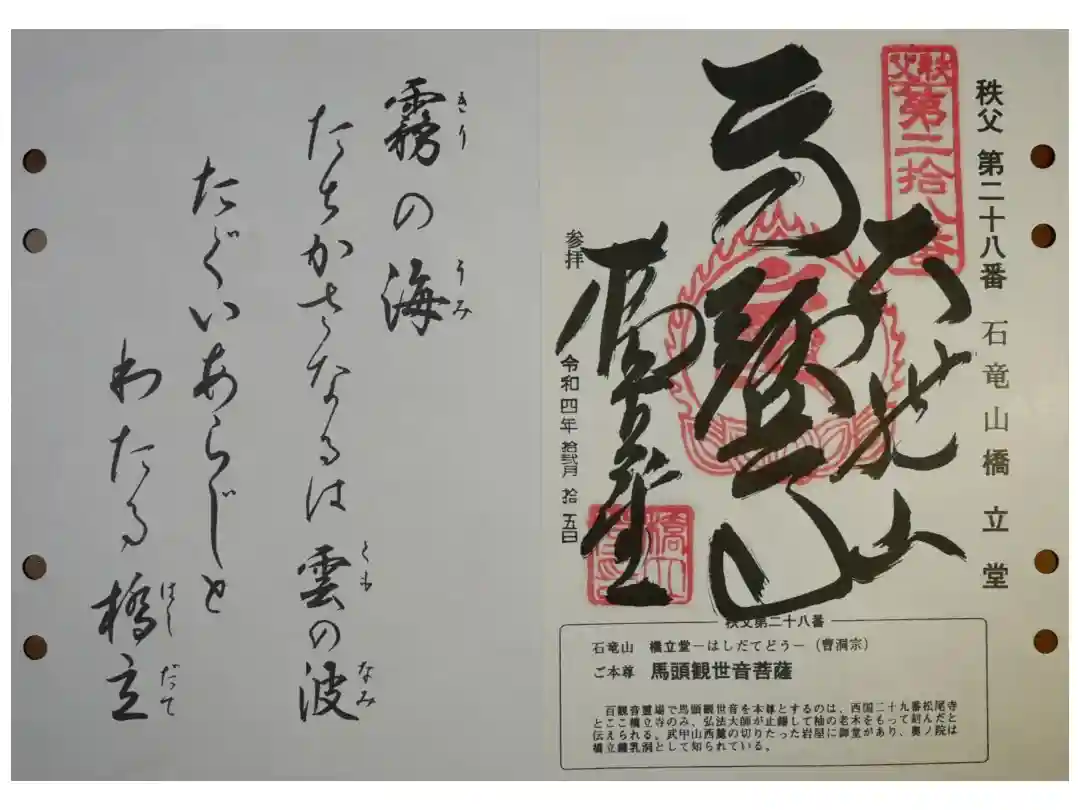 秩父 第二十八番 石竜山橋立堂
秩父
第二拾八番
参拝 令和四年 拾弐月 拾五日
秩父第二十八番
石竜山 橋立堂―はしだてどう―（曹洞宗）
ご本尊 馬頭観世音菩薩
百観音霊場で馬頭観世音を本尊とするのは、西国二十九番松尾寺
とここ橋立寺のみ、弘法大師が止錫して柚の老木をもって刻んだと
伝えられる。武甲山西麓の切りたった岩屋に御堂があり、奥ノ院は
橋立鍾乳洞として知られている。
きり うみ
霧の海
たちかさなるは雲の波
くも なみ
たぐいあらじと
わたる橋立
はし だて